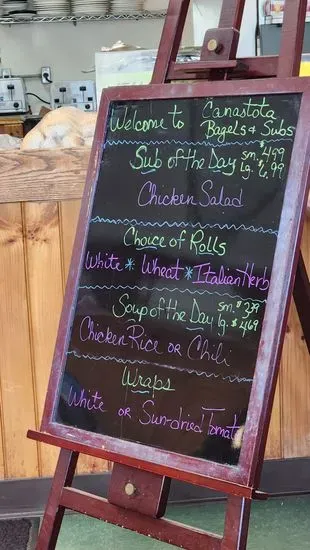 Welcome to Canastota
Bagels & Subs
Sub of the Day sm. $4.99
Lg. $6.99
Chicken Salad
Choice of Rolls
White * Wheat * Italian Herb
Soup of the Day sm. $3.79
lg. $4.69
Chicken Rice or Chili
Wraps
White or Sun-dried Tomato